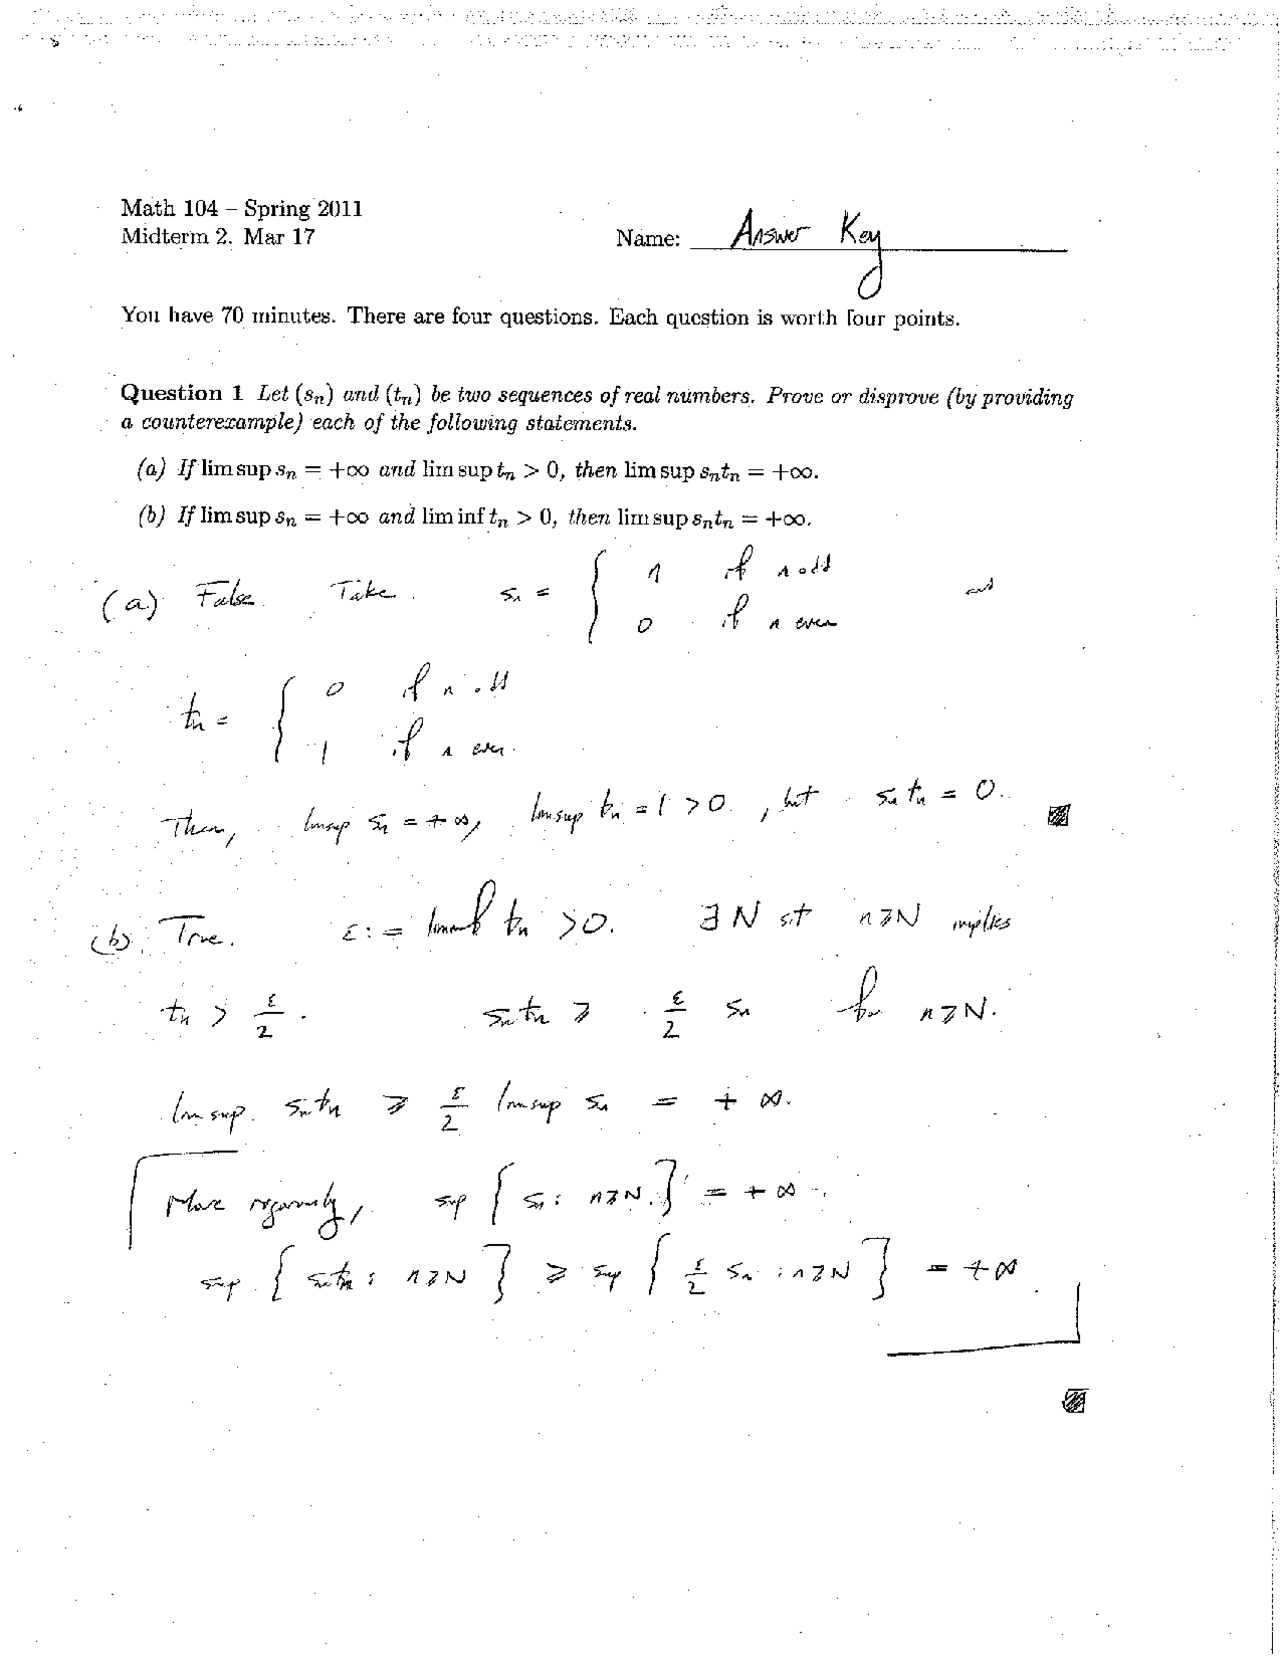 Math 104 – Spring 2011
Midterm 2. Mar 17
Name: Answer Key
You have 70 minutes. There are four questions. Each question is worth four points.
Question 1 Let (sₙ) and (tₙ) be two sequences of real numbers. Prove or disprove (by providing
a counterexample) each of the following statements.
(a) If lim sup sₙ = +∞ and lim sup tₙ > 0, then lim sup sₙtₙ = +∞.
(b) If lim sup sₙ = +∞ and lim inf tₙ > 0, then lim sup sₙtₙ = +∞.
(a) False. Take sₙ = { n if n odd
0 if n even
and
tₙ = { 0 if n odd
1 if n even.
Then, limsup sₙ = +∞, limsup tₙ = 1 > 0, but sₙtₙ = 0.
(b) True. ε := liminf tₙ > 0. ∃ N st n ≥ N implies
tₙ > ε/2. sₙtₙ ≥ ε/2 sₙ for n ≥ N.
limsup sₙtₙ ≥ ε/2 limsup sₙ = +∞.
More rigorously, sup { sₙ : n ≥ N } = +∞.
sup { sₙtₙ : n ≥ N } ≥ sup { ε/2 sₙ : n ≥ N } = +∞